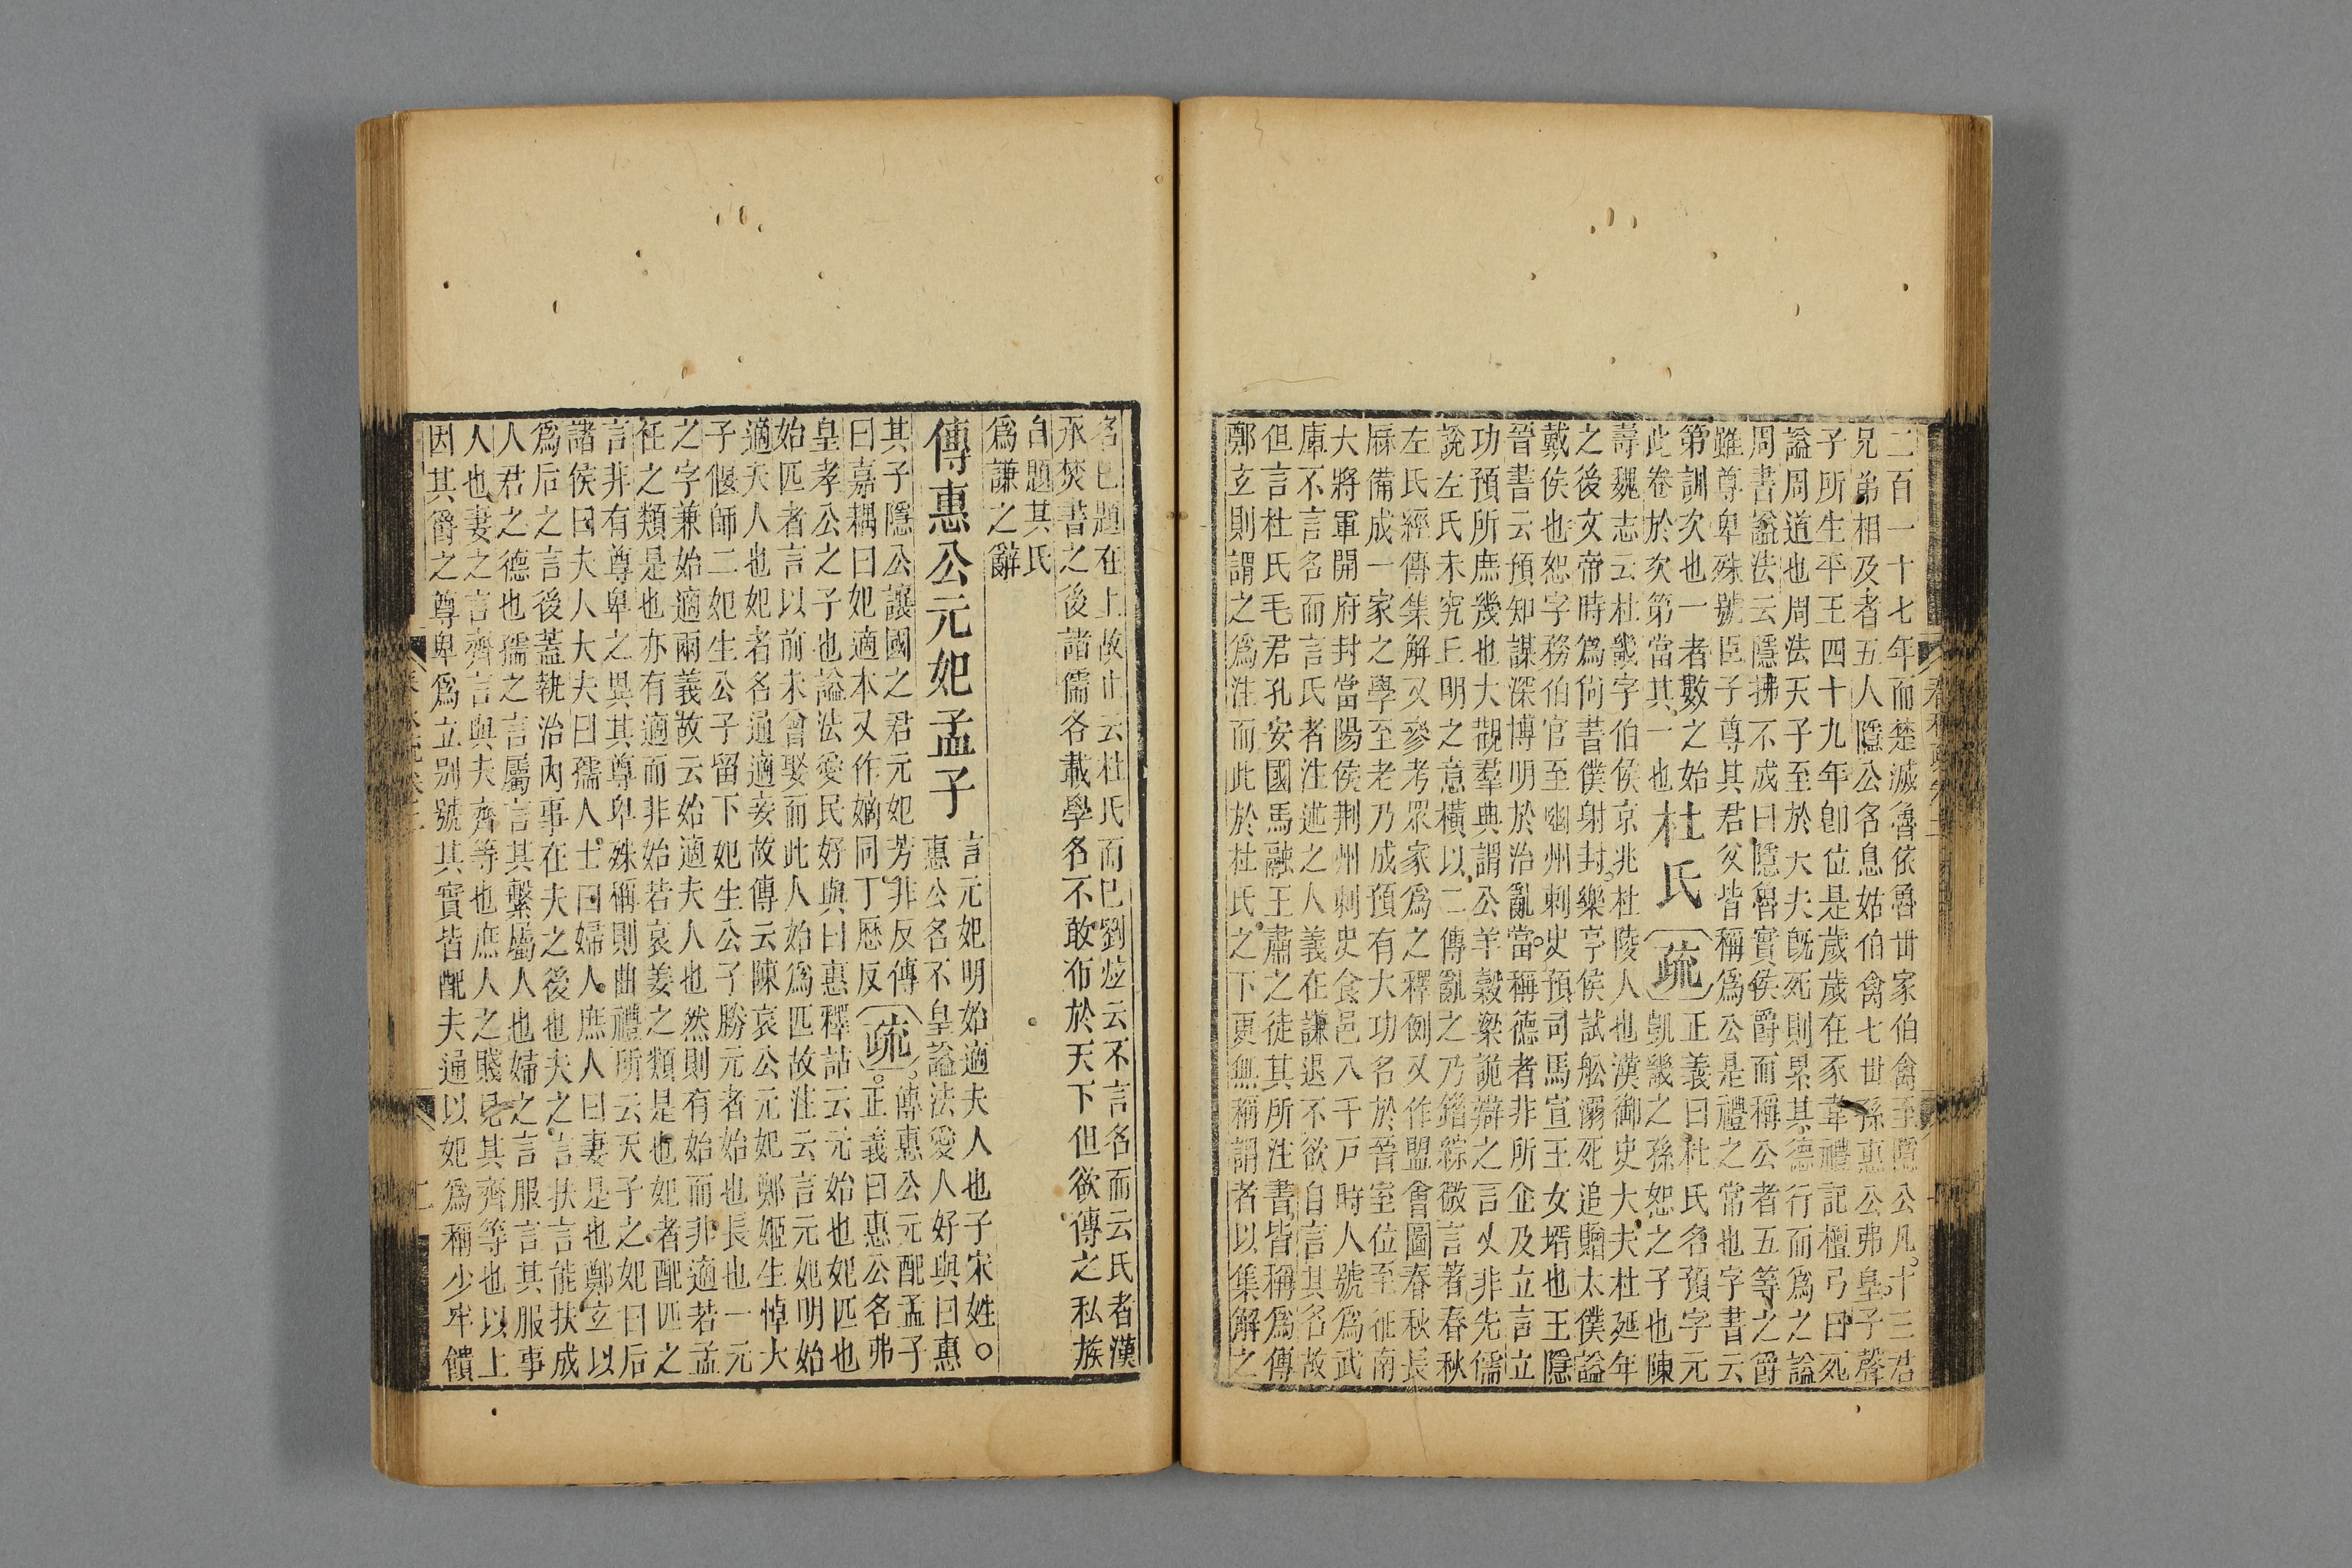 二百一十七年而楚滅魯依魯世家伯禽至隱公凡十三君
兄弟相及者五人隱公名息姑伯禽七世孫惠公弗皇子聲
子所生平王四十九年卽位是歲歲在豕韋禮記檀弓曰死
謚周道也周法天子至於大夫旣死則累其德行而爲之謚
周書謚法云隱拂不成曰隱魯實侯爵而稱公者五等之爵
雖尊卑殊號臣子尊其君父皆稱爲公是禮之常也字書云
第訓次也一者數之始
此卷於次第當其一也
杜氏
疏
正義曰杜氏名預字元
凱畿之孫恕之子也陳
壽魏志云杜畿字伯侯京兆杜陵人也漢御史大夫杜延年
之後文帝時爲尙書僕射封樂亭侯試船溺死追贈太僕謚
戴侯也恕字務伯官至幽州刺史預司馬宣王女壻也王隱
晉書云預知謀深博明於治亂當稱德者非所企及立言立
功預所庶幾也大觀羣典謂公羊穀梁詭辯之言又非先儒
說左氏未究丘明之意橫以二傳亂之乃錯綜微言著春秋
左氏經傳集解又參考眾家爲之釋例又作盟會圖春秋長
厤備成一家之學至老乃成預有大功名於晉室位至征南
大將軍開府封當陽侯荆州刺史食邑八千戸時人號爲武
庫不言名而言氏者注述之人義在謙退不欲自言其名故
但言杜氏毛君孔安國馬融王肅之徒其所注書皆稱爲傳
鄭玄則謂之爲注而此於杜氏之下更無稱謂者以集解之
名已題在上故止云杜氏而已劉炫云不言名而云氏者漢
承焚書之後諸儒各載學名不敢布於天下但欲傳之私族
自題其氏
爲謙之辭
傳惠公元妃孟子
言元妃明始適夫人也子宋姓。
惠公名不皇謚法愛人好與曰惠
其子隱公讓國之君元妃芳非反傳
曰嘉耦曰妃適本又作嫡同丁厯反
疏
傳惠公元配孟子
正義曰惠公名弗
皇孝公之子也謚法愛民好與曰惠釋詁云元始也妃匹也
始匹者言以前未曾娶而此人始爲匹故注云言元妃明始
適夫人也妃者名通適妾故傳云陳哀公元妃鄭姬生悼大
子偃師二妃生公子留下妃生公子勝元者始也長也一元
之字兼始適兩義故云始適夫人也然則有始而非適若孟
任之類是也亦有適而非始若哀姜之類是也妃者配匹之
言非有尊卑之異其尊卑殊稱則曲禮所云天子之妃曰后
諸侯曰夫人大夫曰孺人士曰婦人庶人曰妻是也鄭玄以
爲后之言後蓋執治內事在夫之後也夫之言扶言能扶成
人君之德也孺之言屬言其繫屬人也婦之言服言其服事
人也妻之言齊言與夫齊等也庶人之賤見其齊等也以上
因其爵之尊卑爲立別號其實皆配夫通以妃爲稱少牢饋